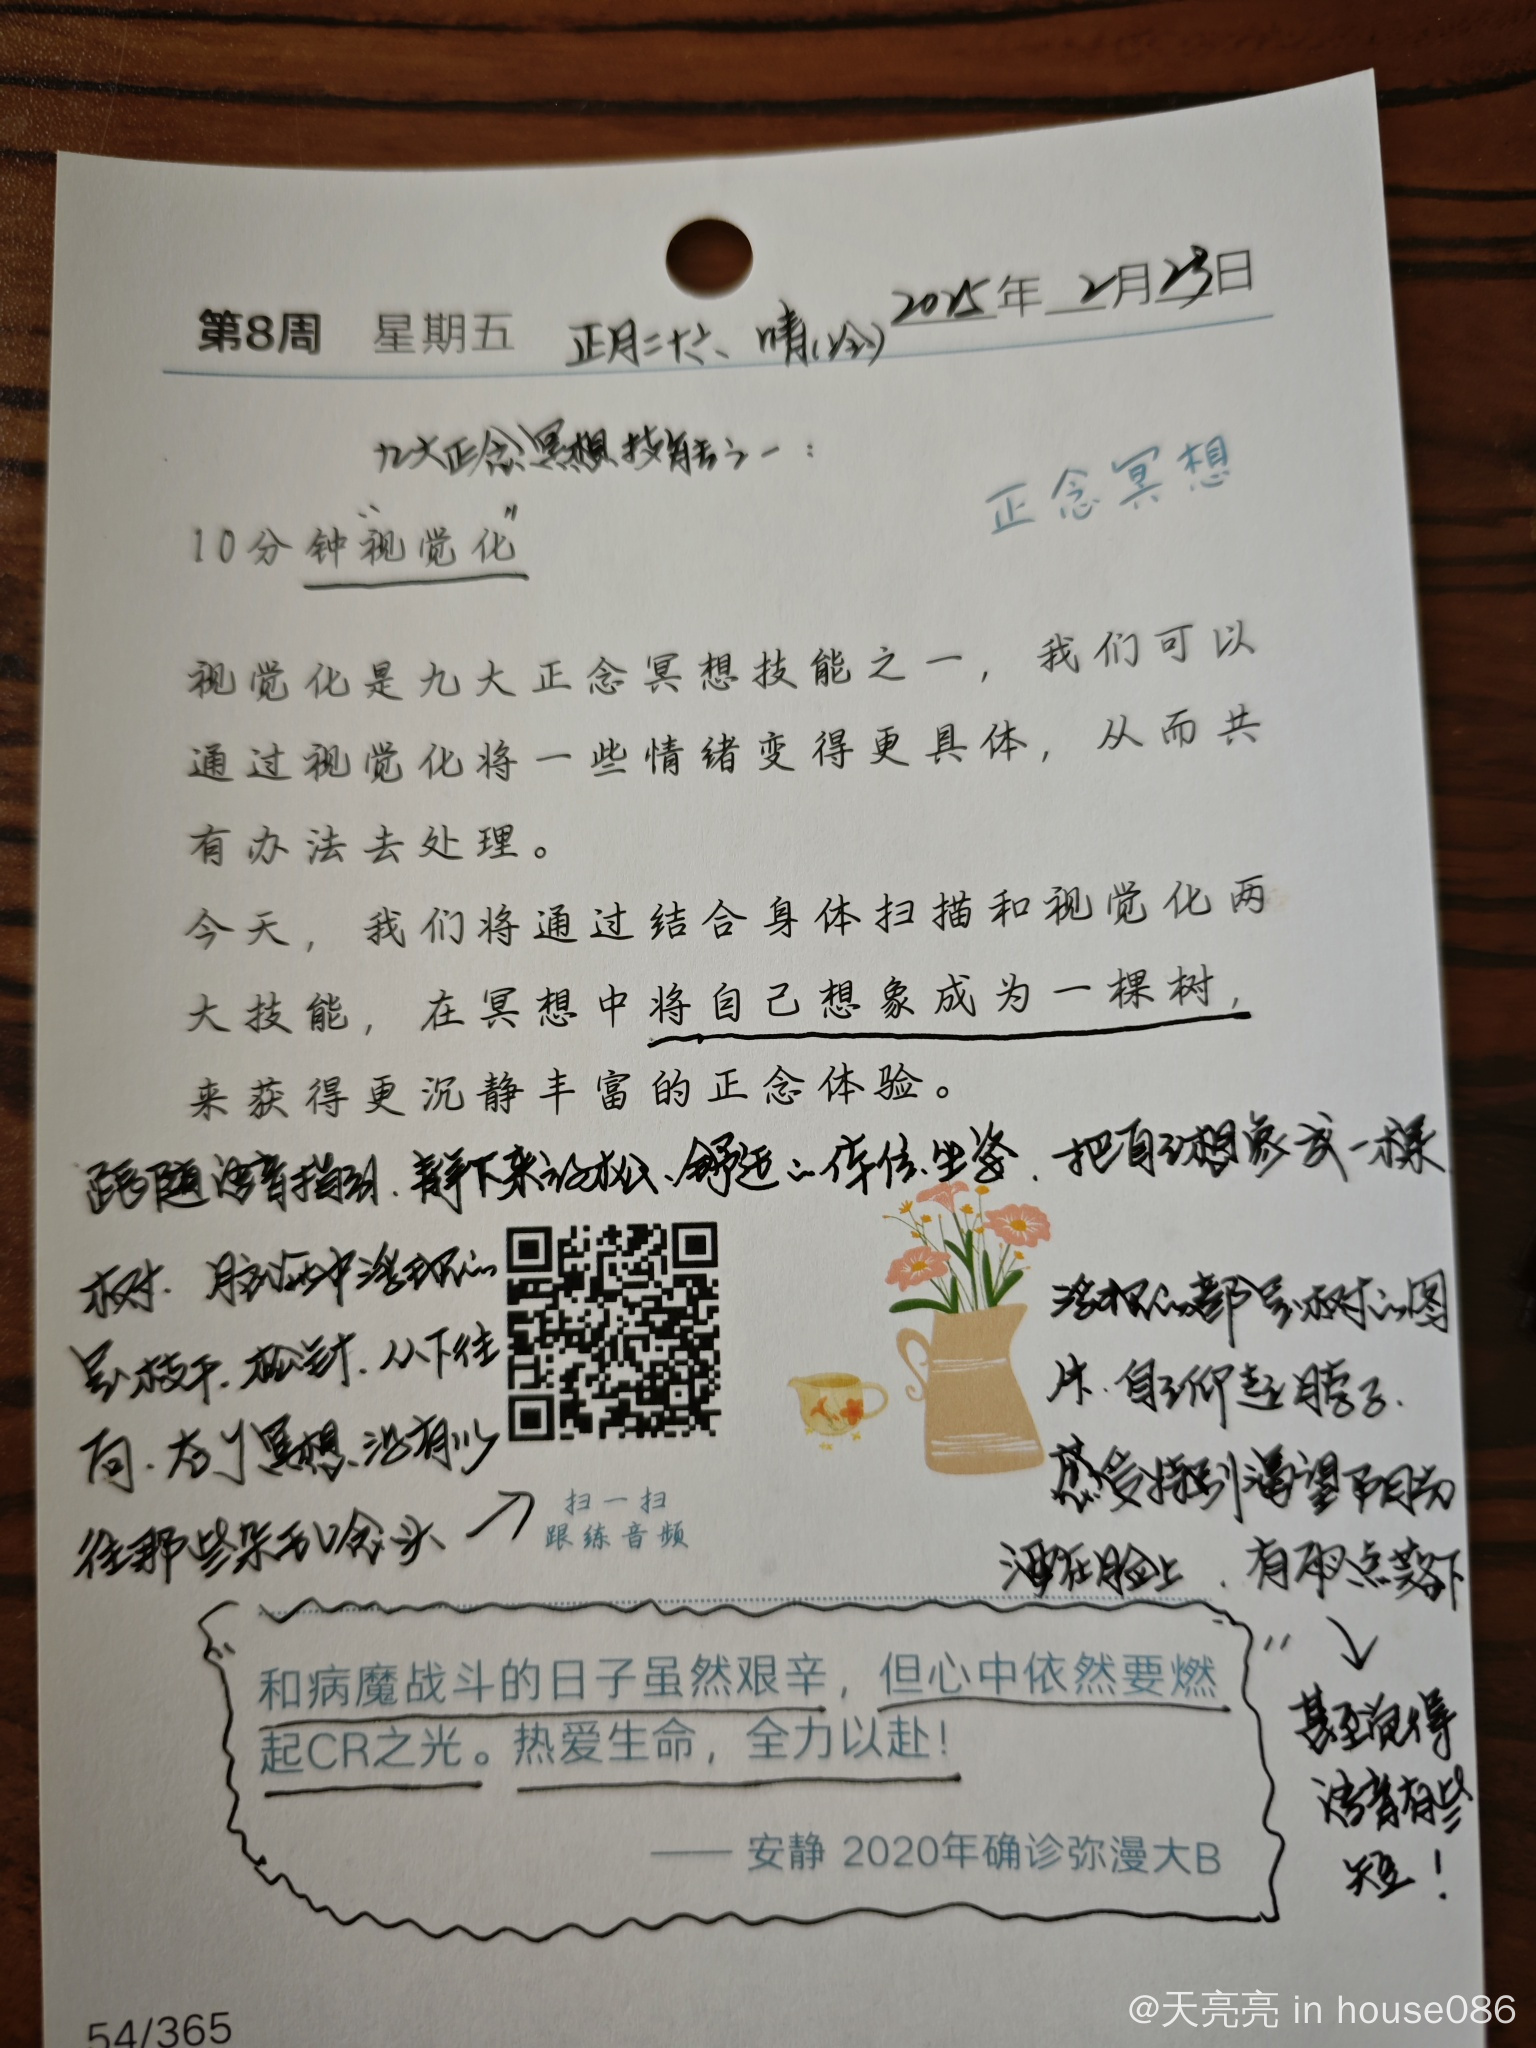 第8周 星期五 正月二十六、晴(冷) 2025年2月23日
九大正念冥想技能之一：
正念冥想
10分钟“视觉化”
视觉化是九大正念冥想技能之一，我们可以
通过视觉化将一些情绪变得更具体，从而共
有办法去处理。
今天，我们将通过结合身体扫描和视觉化两
大技能，在冥想中将自己想象成为一棵树，
来获得更沉静丰富的正念体验。
跟随语音指引、静下来放松、舒适的体位、坐姿、把自己想象成一棵
树、脑海中浮现的
是枝干、松针、从下往
向、冥想、没有以
往那些杂乱念头
扫一扫
跟练音频
浮现的都是树的图
片、自己仰起脖子、
感受特别渴望阳光
洒在脸上、有雨点落下
甚至觉得
语音有些
短！
和病魔战斗的日子虽然艰辛，但心中依然要燃
起CR之光。热爱生命，全力以赴！
—— 安静 2020年确诊弥漫大B
54/365
@天亮亮 in house086